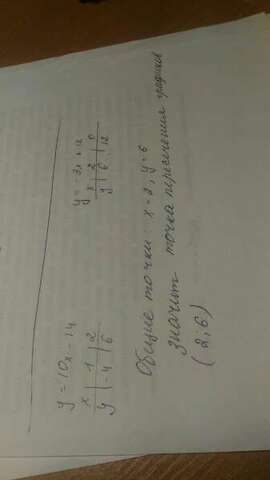 y = 10x - 14
x | 1 | 2
y | -4 | 6
y = -3x + 12
x | 2 | 0
y | 6 | 12
Общие точки: x = 2, y = 6
значит точка пересечения графиков
(2; 6)